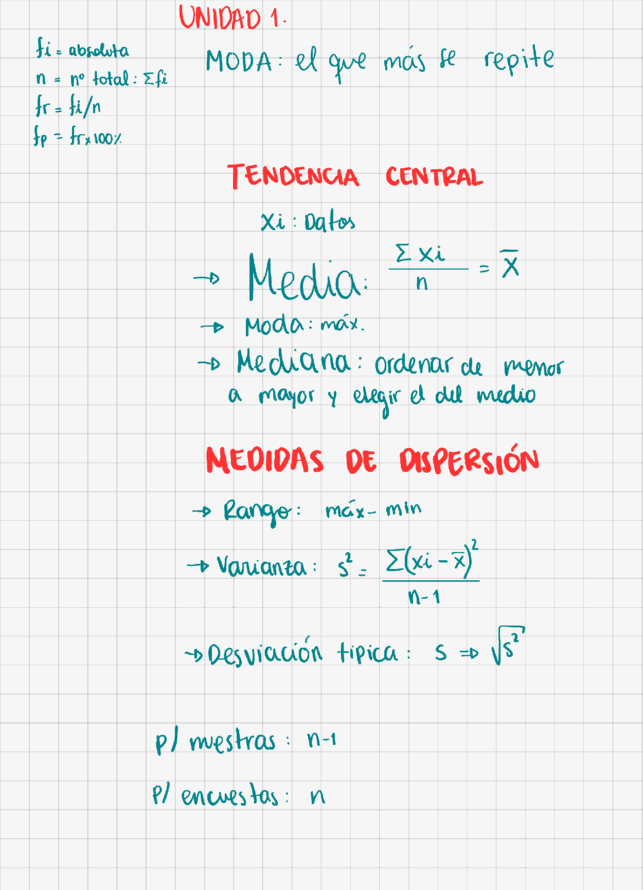 UNIDAD 1.
fi = absoluta
n = nº total: Σfi
fr = fi/n
fp = fr x 100%
MODA: el que más se repite
TENDENCIA CENTRAL
Xi: Datos
→ Media: Σxi / n = x̄
→ Moda: máx.
→ Mediana: ordenar de menor
a mayor y elegir el del medio
MEDIDAS DE DISPERSIÓN
→ Rango: máx - min
→ Varianza: s² = Σ(xi - x̄)² / n-1
→ Desviación tipica: s ⇒ √s²
p/ muestras: n-1
p/ encuestas: n